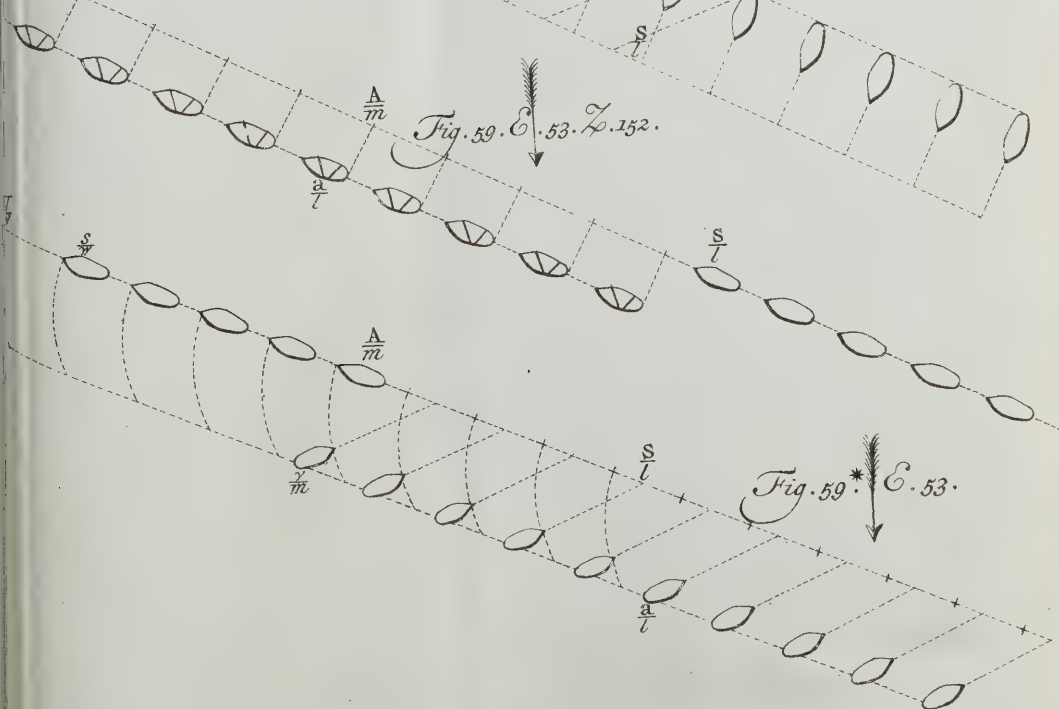 S
l
A
m
Fig. 59. E. 53. Z. 152.
a
l
S
l
A
m
S
l
γ
m
Fig. 59.* E. 53.
a
l